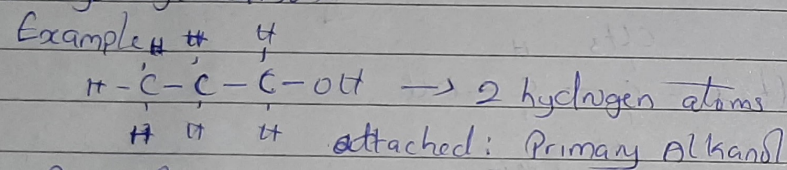 Example H H H
H - C - C - C - OH → 2 hydrogen atoms
H H H attached: Primary Alkanol